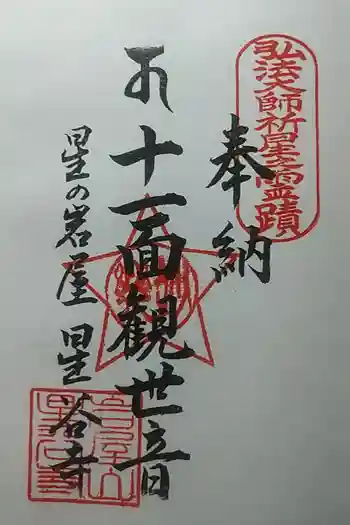 弘法大師祈星之霊蹟
奉納
十一面觀世音
星の岩屋 星谷寺